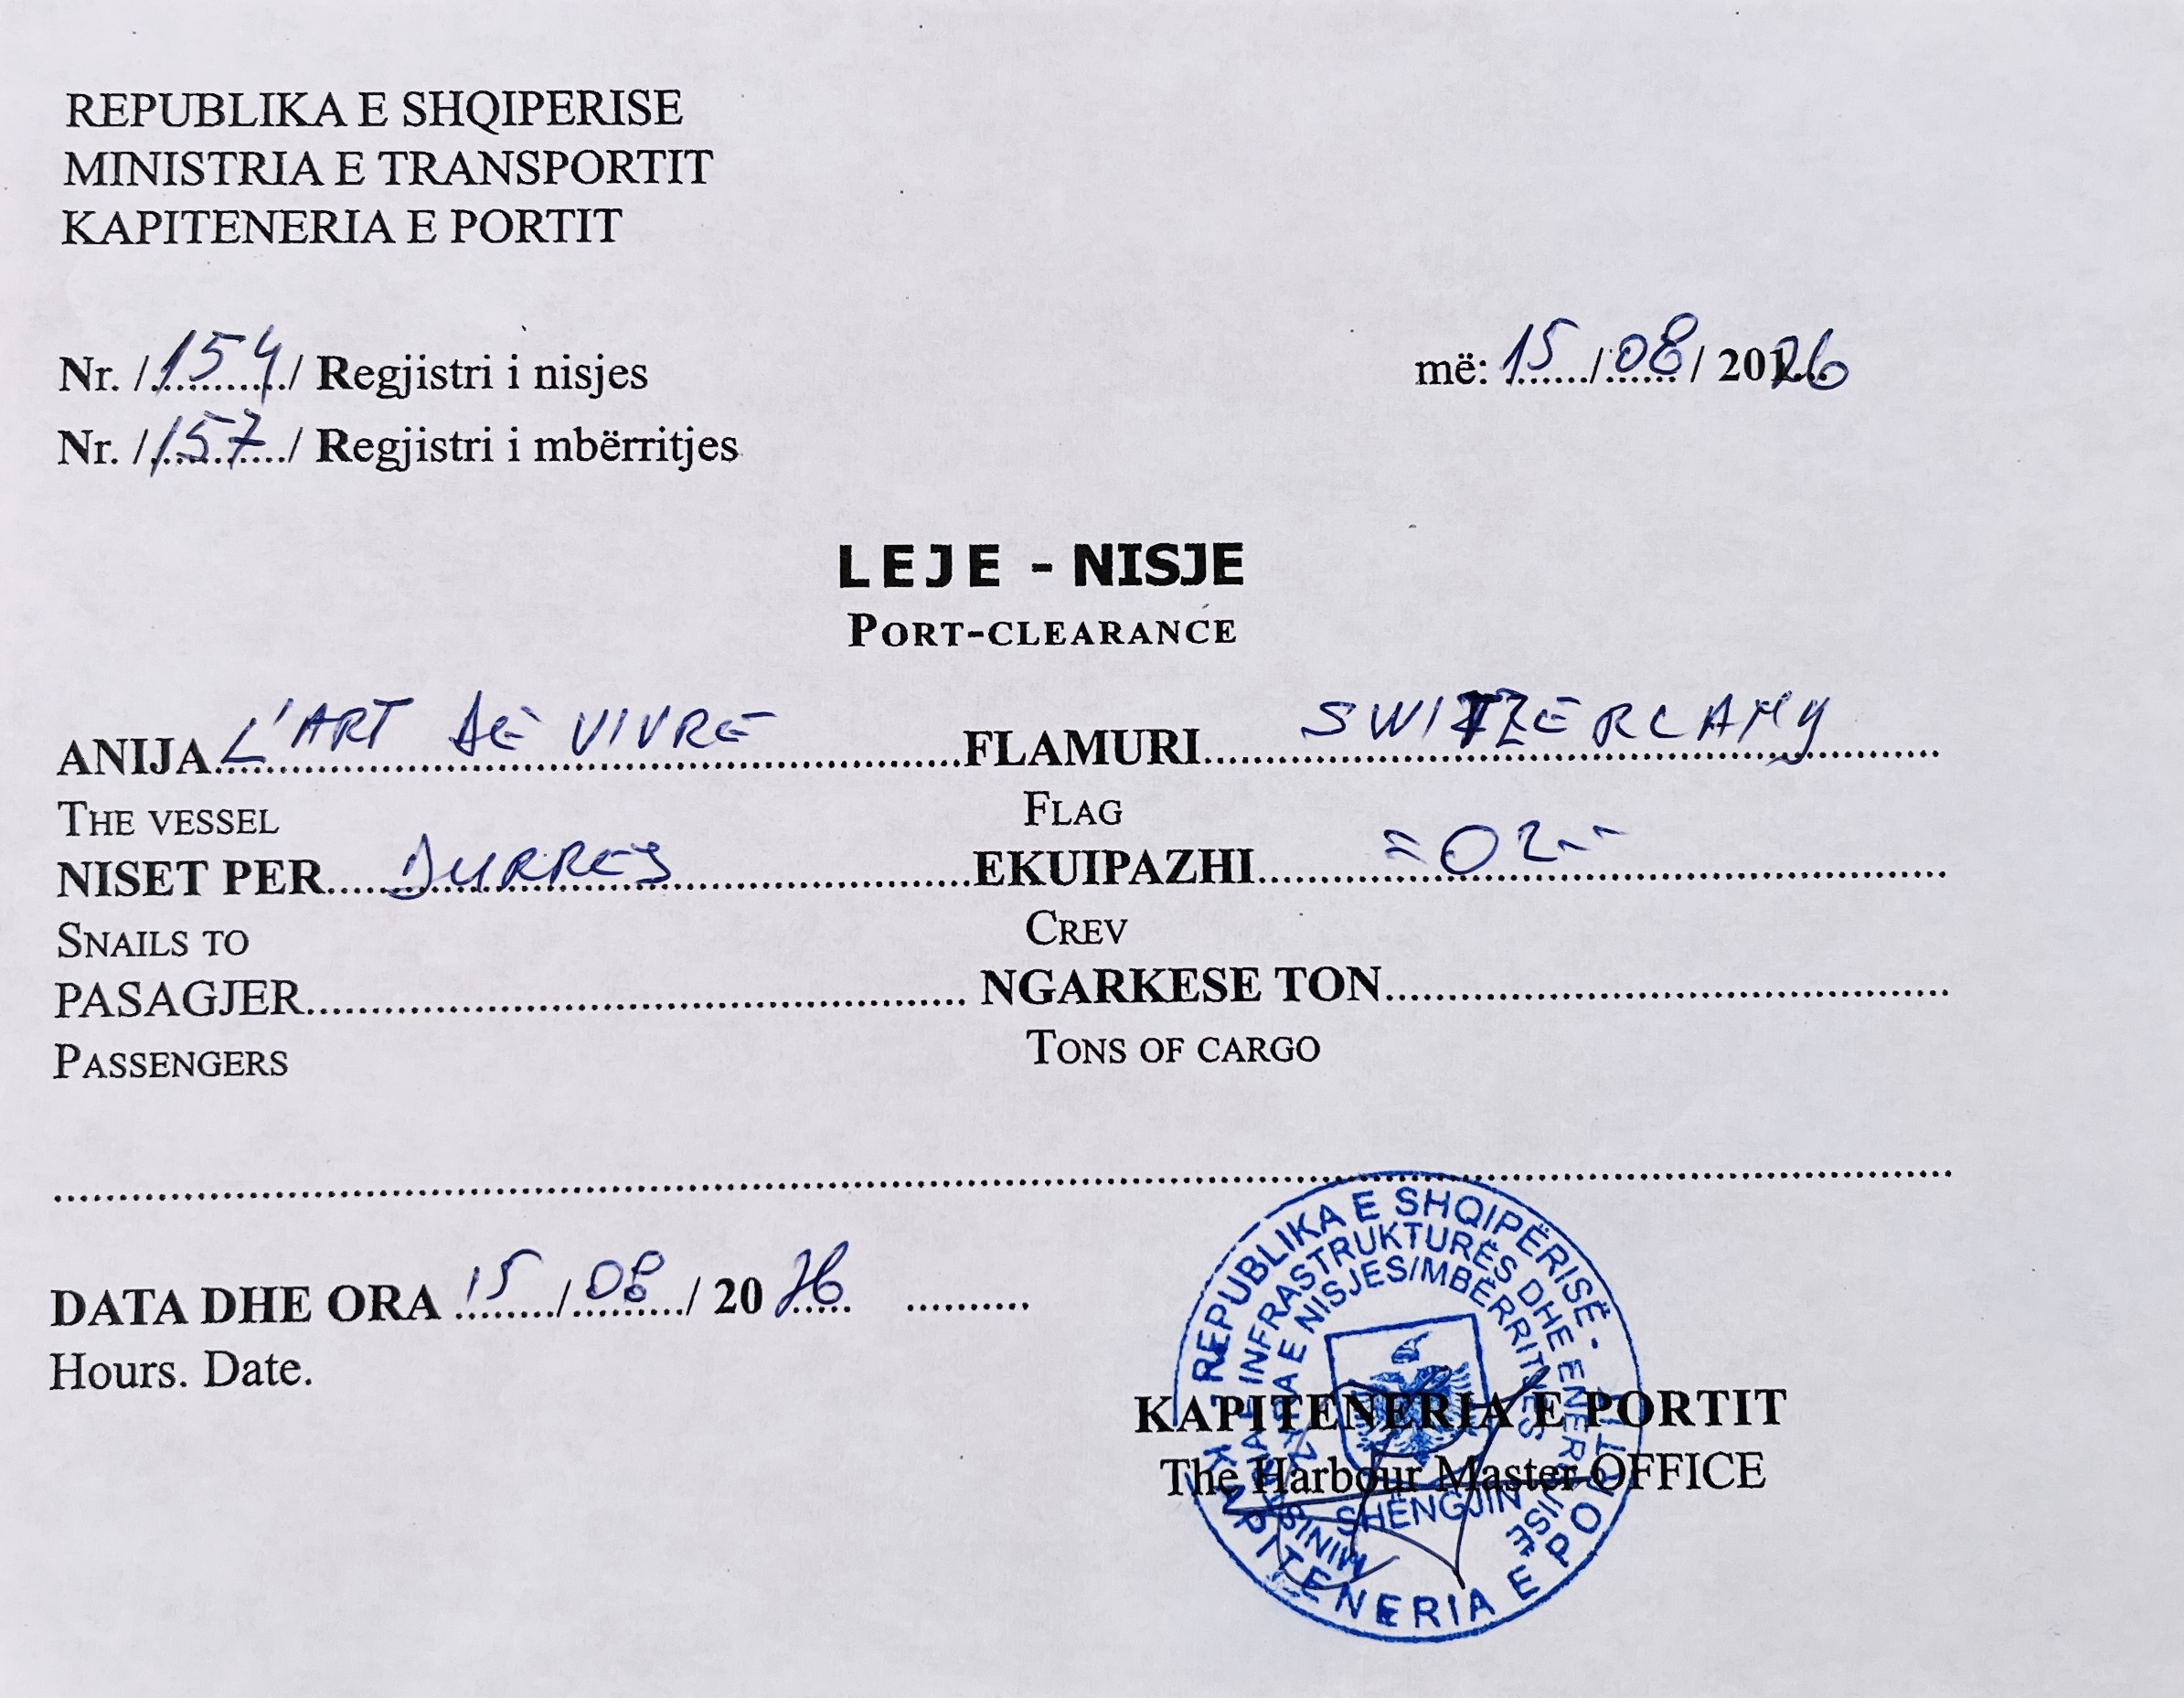 REPUBLIKA E SHQIPERISE
MINISTRIA E TRANSPORTIT
KAPITENERIA E PORTIT
Nr. /154/ Regjistri i nisjes
më: 15/08/ 2026
Nr. /157/ Regjistri i mbërritjes
LEJE - NISJE
PORT-CLEARANCE
ANIJA L'ART DE VIVRE FLAMURI SWITZERLAND
THE VESSEL FLAG
NISET PER DURRES EKUIPAZHI =02--
SNAILS TO CREV
PASAGJER NGARKESE TON
PASSENGERS TONS OF CARGO
DATA DHE ORA 15/08/ 2026
Hours. Date.
KAPITENERIA E PORTIT
The Harbour Master OFFICE
REPUBLIKA E SHQIPËRISË -
INFRASTRUKTURËS DHE
E NISJES/MBËRRITJES
SHËNGJIN
KAPITENERIA E PORTIT